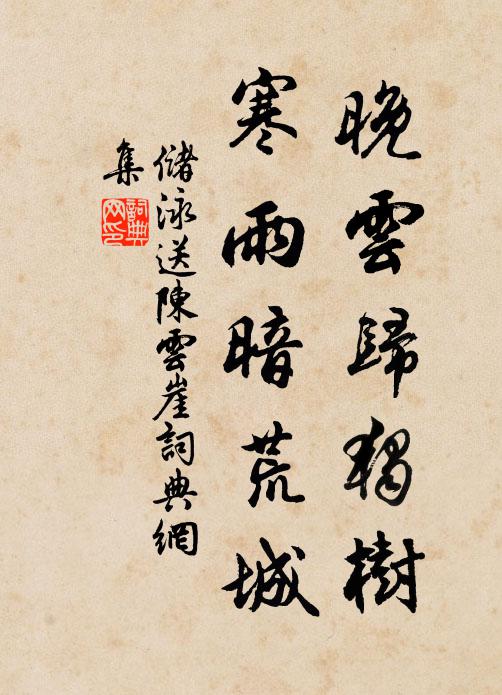 晚雲歸獨樹
寒雨暗荒城
儲泳送陳雲崖詞典網
集
詞典
网印